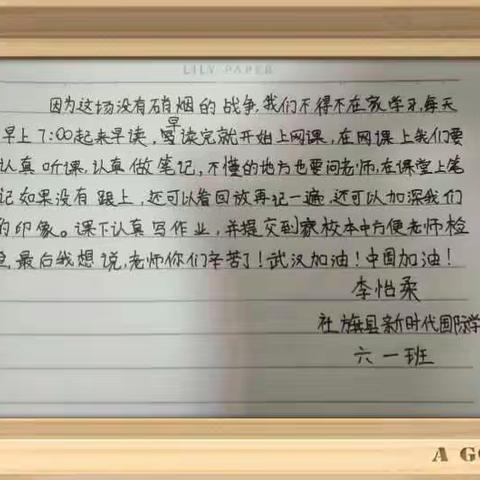 LILY PAPER
因为这场没有硝烟的战争,我们不得不在家学习,每天
早上7:00起来早读,早读完就开始上网课,在网课上我们要
认真听课,认真做笔记,不懂的地方也要问老师,在课堂上笔
记如果没有跟上,还可以看回放再记一遍,还可以加深我们
的印象。课下认真写作业,并提交到家校本中方便老师检
查,最后我想说,老师你们辛苦了!武汉加油!中国加油!
李怡柔
社旗县新时代国际学
六一班
A